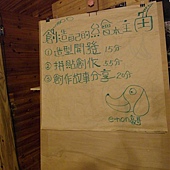 創造自己的繪本主角
①造型開發 15分
②拼貼創作 35分
③創作故事分享 20分